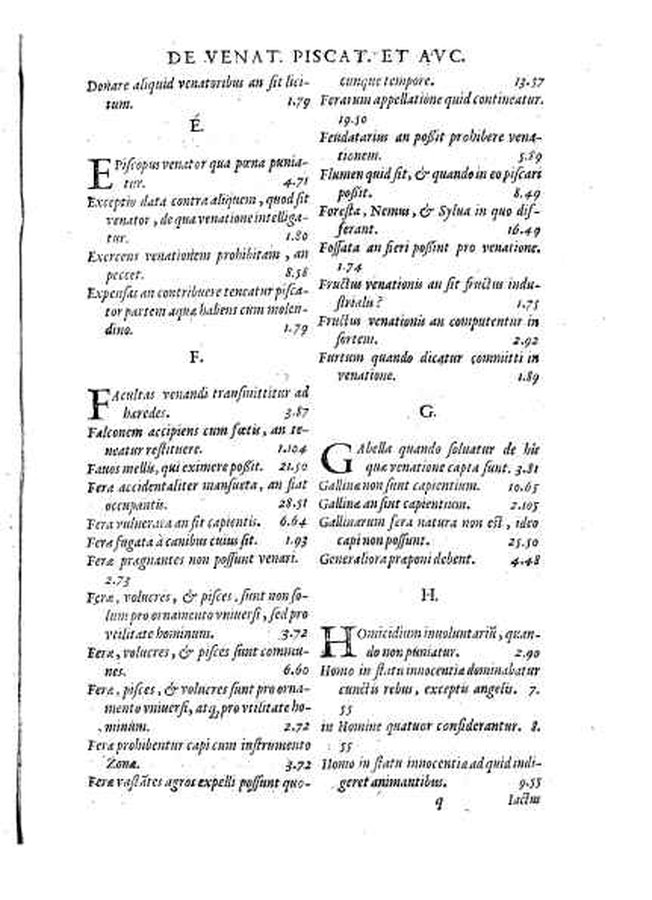 DE VENAT. PISCAT. ET AVC.
Donare aliquid venatoribus an sit lici-
tum. 1.79
E.
EPiscopus venator qua pœna punia-
tur. 4.71
Exceptio data contra aliquem, quod sit
venator, de qua venatione intelliga-
tur. 1.80
Exercens venationem prohibitam, an
peccet. 8.58
Expensas an contribuere teneatur pisca-
tor partem aquæ habens cum molen-
dino. 1.79
F.
FAcultas venandi transmittitur ad
hæredes. 3.87
Falconem accipiens cum fœtis, an te-
neatur restituere. 1.104
Fauos mellis, qui eximere possit. 21.50
Fera accidentaliter mansueta, an fiat
occupantis. 28.51
Fera vulnerata an sit capientis. 6.64
Fera fugata à canibus cuius sit. 1.93
Feræ prægnantes non possunt venari.
2.73
Feræ, volucres, & pisces, sunt non so-
lum pro ornamento vniuersi, sed pro
vtilitate hominum. 3.72
Feræ, volucres, & pisces sunt commu-
nes. 6.60
Feræ, pisces, & volucres sunt pro orna-
mento vniuersi, atq; pro vtilitate ho-
minum. 2.72
Feræ prohibentur capi cum instrumento
Zonæ. 3.72
Feræ vastātes agros expelli possunt quo-
cunque tempore. 13.57
Ferarum appellatione quid contineatur.
19.50
Feudatarius an possit prohibere vena-
tionem. 5.89
Flumen quid sit, & quando in eo piscari
possit. 8.49
Foresta, Nemus, & Sylua in quo dif-
ferant. 16.49
Fossata an fieri possint pro venatione.
1.74
Fructus venationis an sit fructus indu-
strialis? 1.75
Fructus venationis an computentur in
sortem. 2.92
Furtum quando dicatur committi in
venatione. 1.89
G.
GAbella quando soluatur de his
quæ venatione capta sunt. 3.81
Gallinæ non sunt capientium. 10.65
Gallinæ an sint capientium. 2.105
Gallinarum fera natura non est, ideo
capi non possunt. 25.50
Generaliora præponi debent. 4.48
H.
HOmicidium inuoluntariū, quan-
do non puniatur. 2.90
Homo in statu innocentiæ dominabatur
cunctis rebus, exceptis angelis. 7.
55
in Homine quatuor considerantur. 8.
55
Homo in statu innocentiæ ad quid indi-
geret animantibus. 9.55
q Iactus